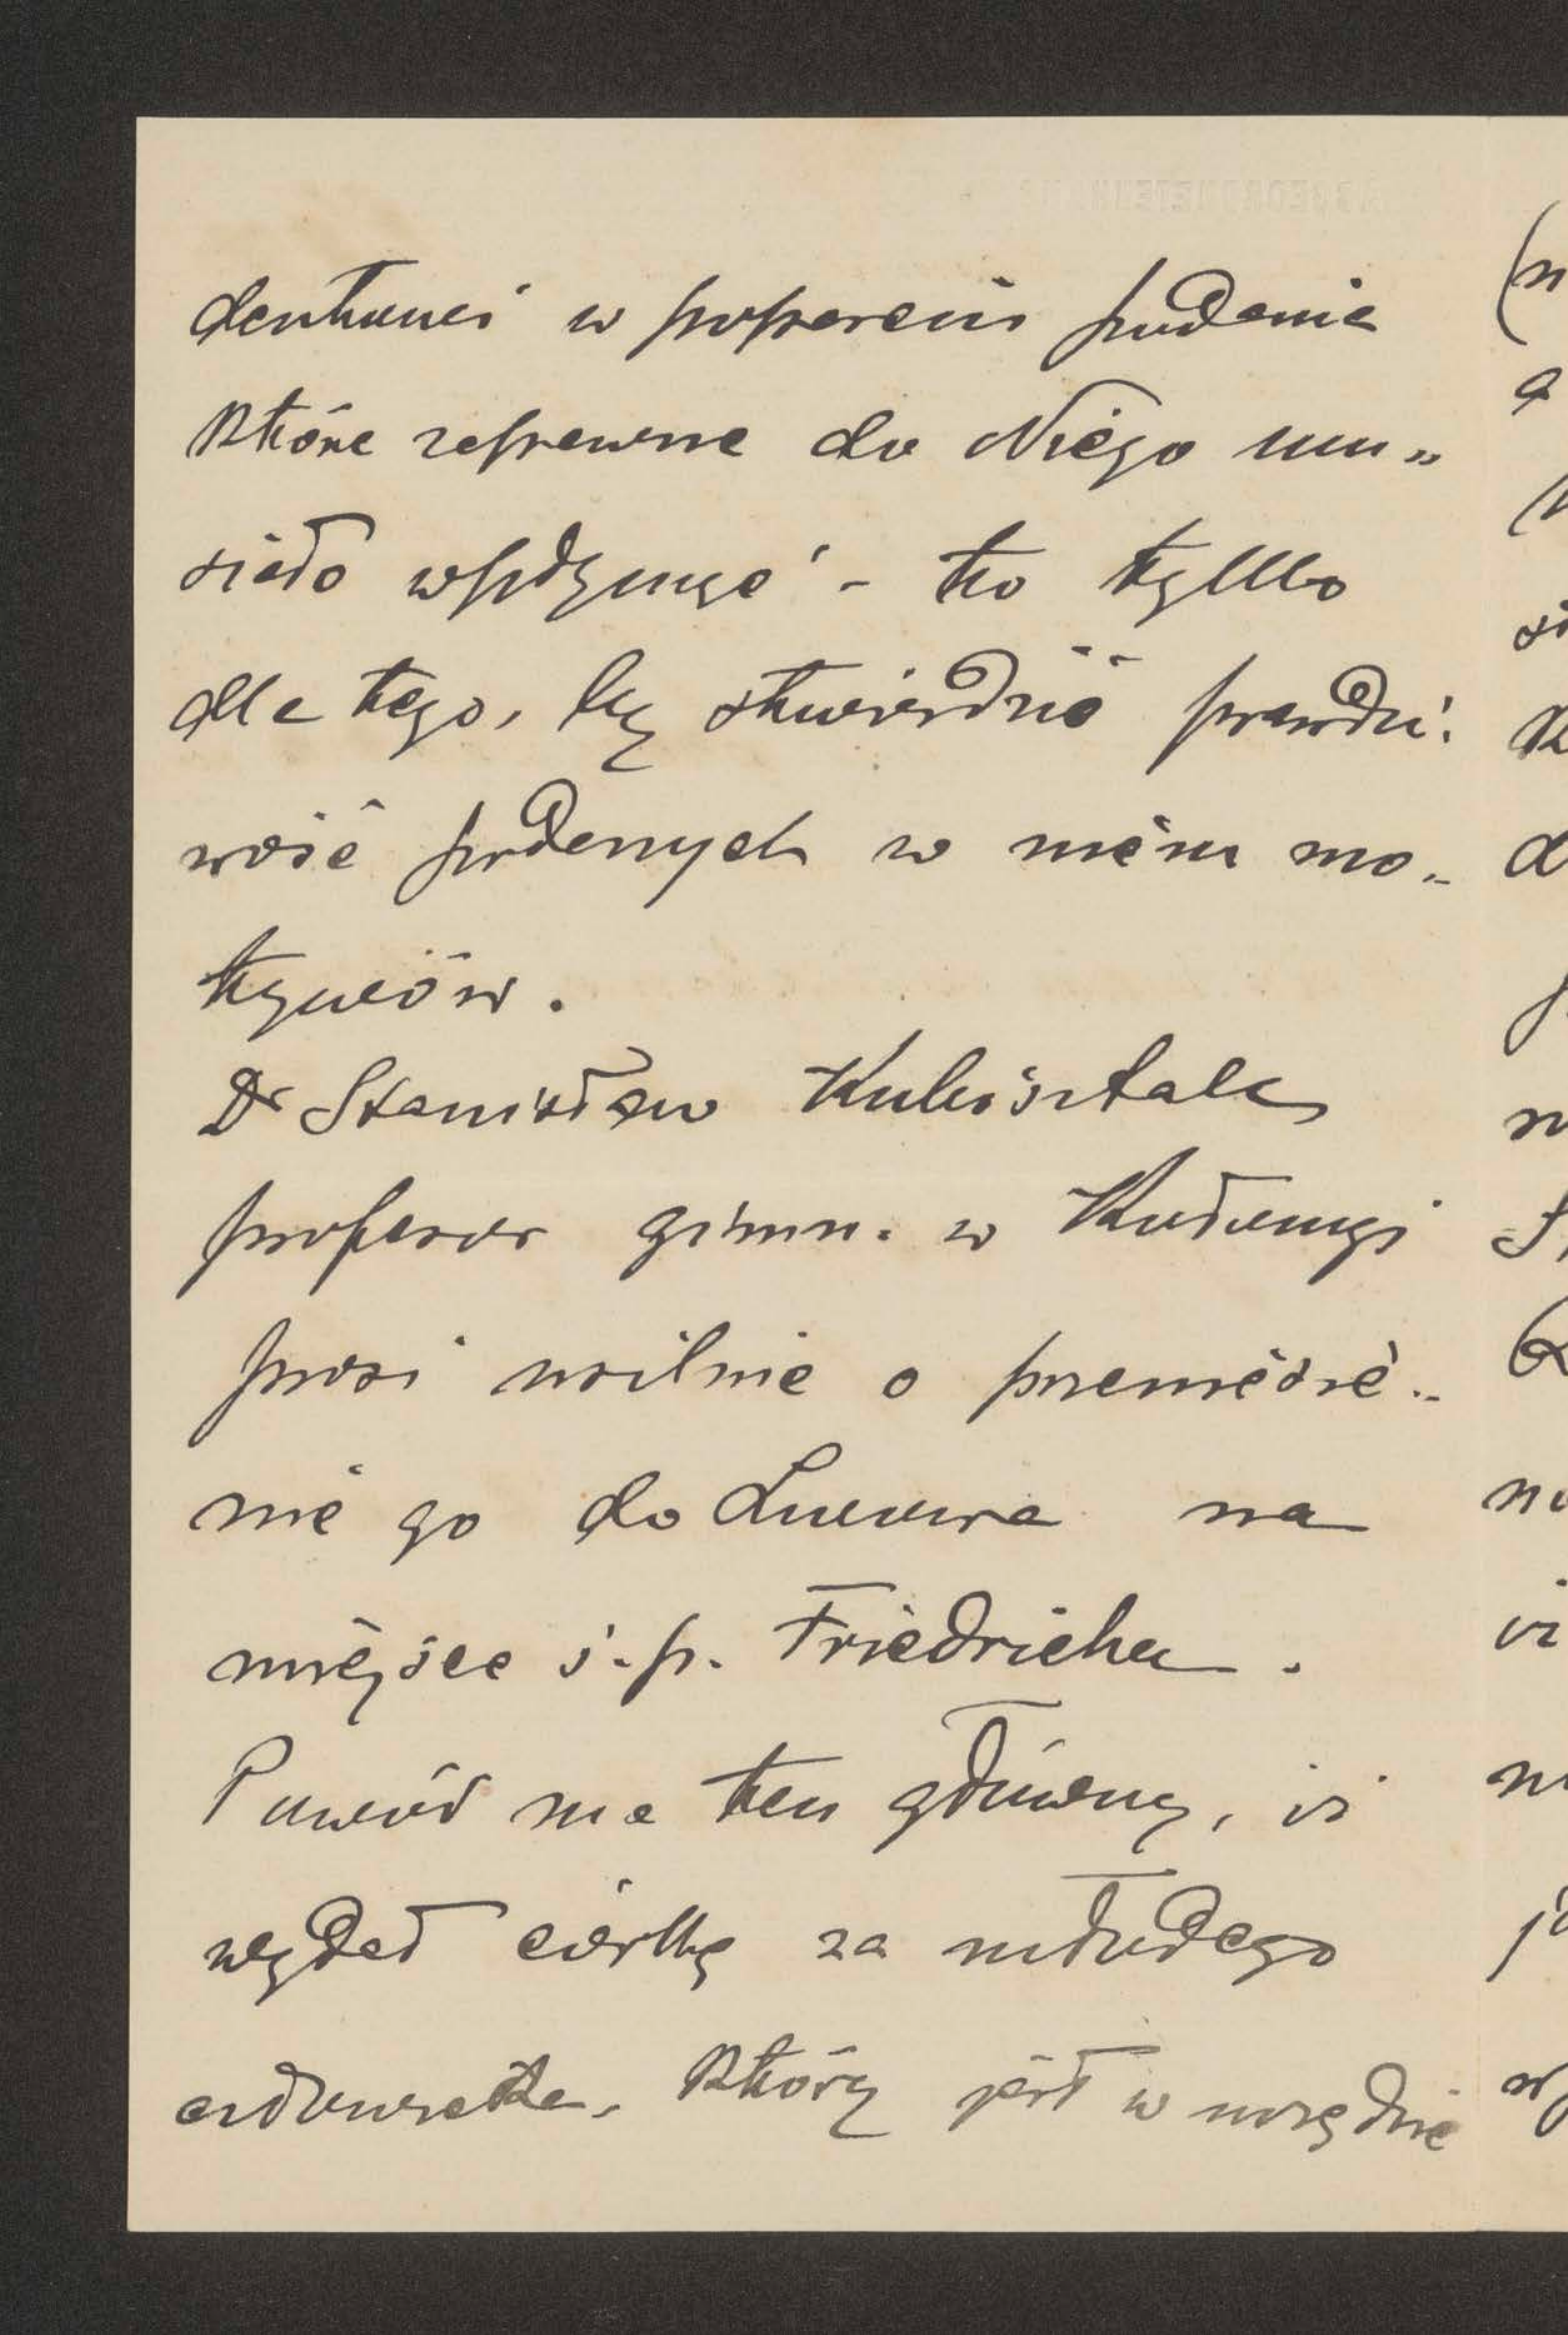 dentowi w poparciu podania
które zapewne do Niego mu„
siało wpłynąć - to tylko
dla tego, by stwierdzić prawdzi:
wość podanych w niém mo„
tywów.
Dr Stanisław Kubisztal
profesor gimn. w Kołomyi
prosi usilnie o przeniesie„
nie go do Lwowa na
miejsce ś.p. Friedricha.
Powód ma ten główny, iż
wydał córkę za młodego
adwokata, który jest w urzędzie